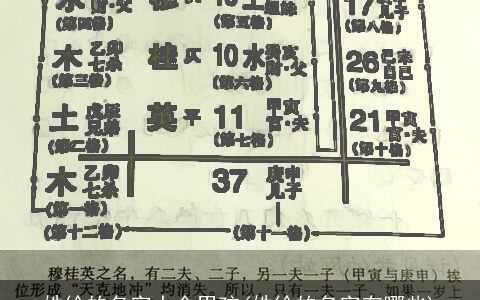 (第四格) (第五格) 17 儿子
(第八格)
木 乙卯 七杀 桂 仄 10 水 癸亥 财·父 26 己未 自己
(第三格) (第六格) (第九格)
土 戊辰 兄弟 英 平 11 甲寅 官·夫 21 甲寅 官·夫
(第二格) (第七格) (第十格)
木 乙卯 七杀 37 庚申 儿子
(第一格)
(第十二格) (第十一格)
穆桂英之名，有二夫、二子，另一夫一子（甲寅与庚申）挨
位形成“天克地冲”均消失。所以，只有一夫一子。如果一岁上